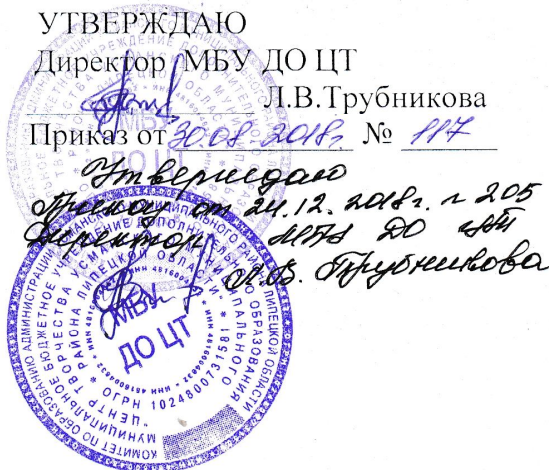 УТВЕРЖДАЮ
Директор МБУ ДО ЦТ
Л.В.Трубникова
Приказ от 30.08 2018г № 117
Утверждаю
Приказ от 24.12.2018г. N 205
Директор МБУ ДО ЦТ
Л.В. Трубникова
МБУ
ДО ЦТ
КОМИТЕТ ПО ОБРАЗОВАНИЮ АДМИНИСТРАЦИИ УСМАНСКОГО МУНИЦИПАЛЬНОГО РАЙОНА ЛИПЕЦКОЙ ОБЛАСТИ
МУНИЦИПАЛЬНОЕ БЮДЖЕТНОЕ УЧРЕЖДЕНИЕ ДОПОЛНИТЕЛЬНОГО ОБРАЗОВАНИЯ
"ЦЕНТР ТВОРЧЕСТВА УСМАНСКОГО МУНИЦИПАЛЬНОГО РАЙОНА ЛИПЕЦКОЙ ОБЛАСТИ"
ОГРН 1024800731581
МБУ
ДО ЦТ